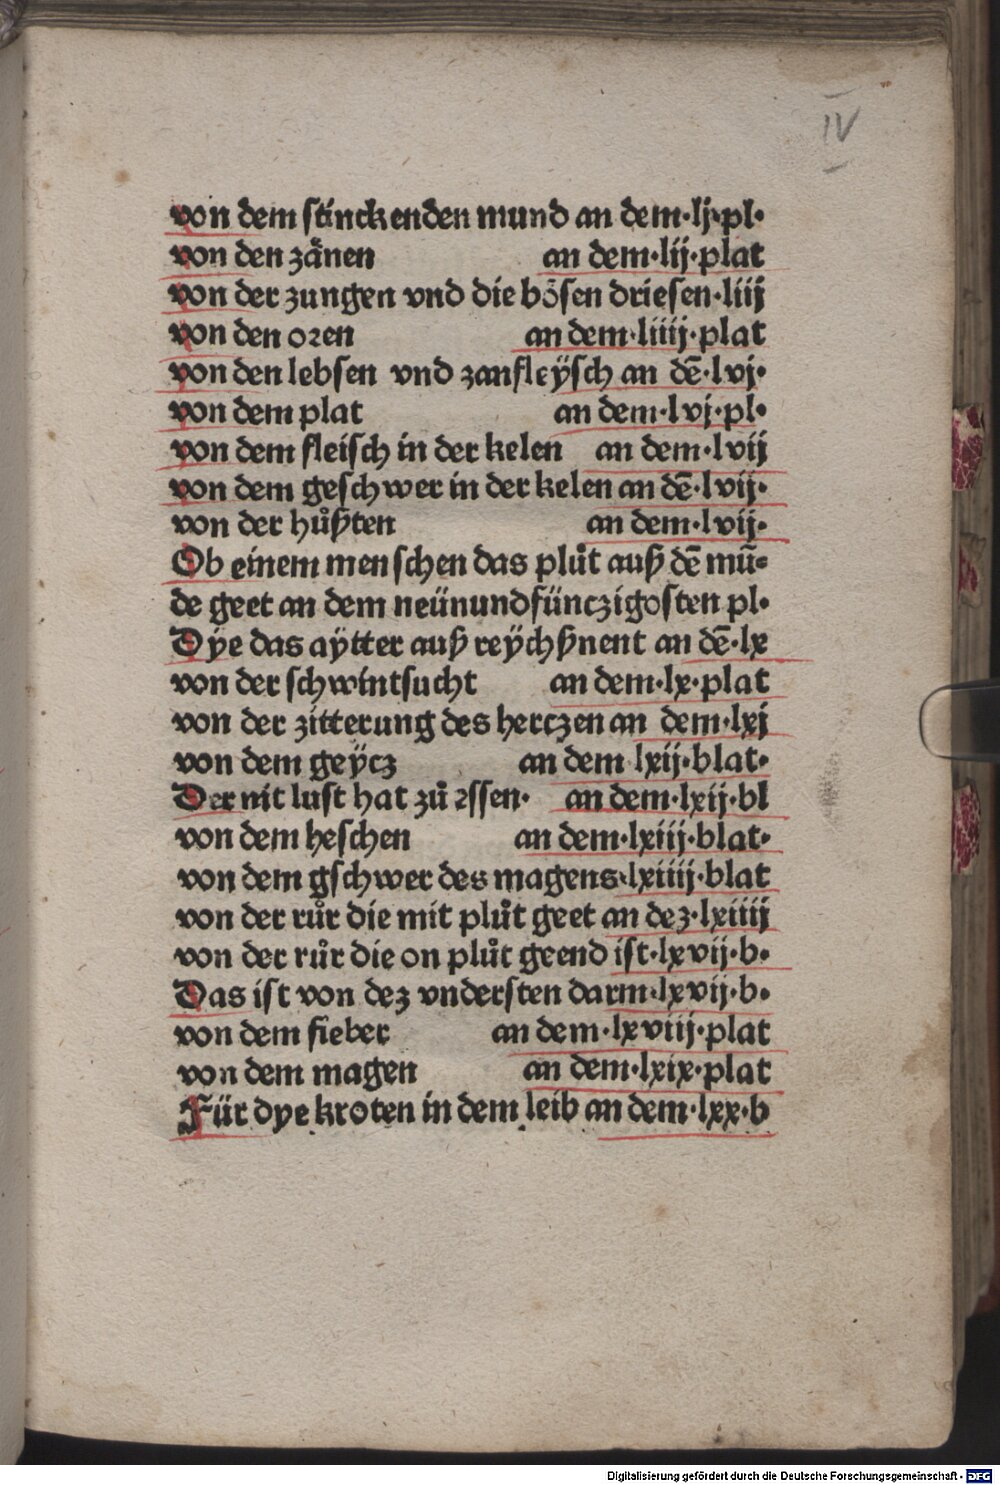 IV
von dem stinckenden mund an dem·lj·pl·
von den zånen an dem·lij·plat
von der zungen vnd die bősen driesen·liij
von den oꝛen an dem·liiij·plat
von den lebsen vnd zanfleÿsch an dē·lvj·
von dem plat an dem·lvj·pl·
von dem fleisch in der kelen an dem·lvij
von dem geschwer in der kelen an dē·lvij·
von der hůßten an dem·lvij·
Ob einem menschen das plůt auß dē mū⸗
de geet an dem neünundfünczigosten pl·
Dye das aÿtter auß reÿchßnent an dē·lx
von der schwintsucht an dem·lx·plat
von der zitterung des herczen an dem·lxj
von dem geÿcz an dem lxij·blat·
Der nit lust hat zů essen· an dem·lxij·bl
von dem heschen an dem·lxiij·blat·
von dem gschwer des magens·lxiiij·blat
von der růr die mit plůt geet an dez·lxiiij
von der růr die on plůt geend ist·lxvij·b·
Das ist von dez vndersten darm·lxvij·b·
von dem fieber an dem·lxviij·plat
von dem magen an dem·lxix·plat
Für dye kroten in dem leib an dem·lxx·b
Digitalisierung gefördert durch die Deutsche Forschungsgemeinschaft - DFG